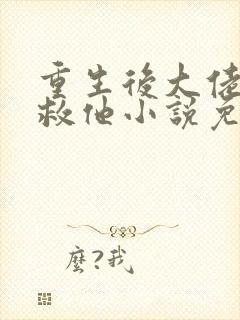 重生後大佬
救他小說免
麼?我